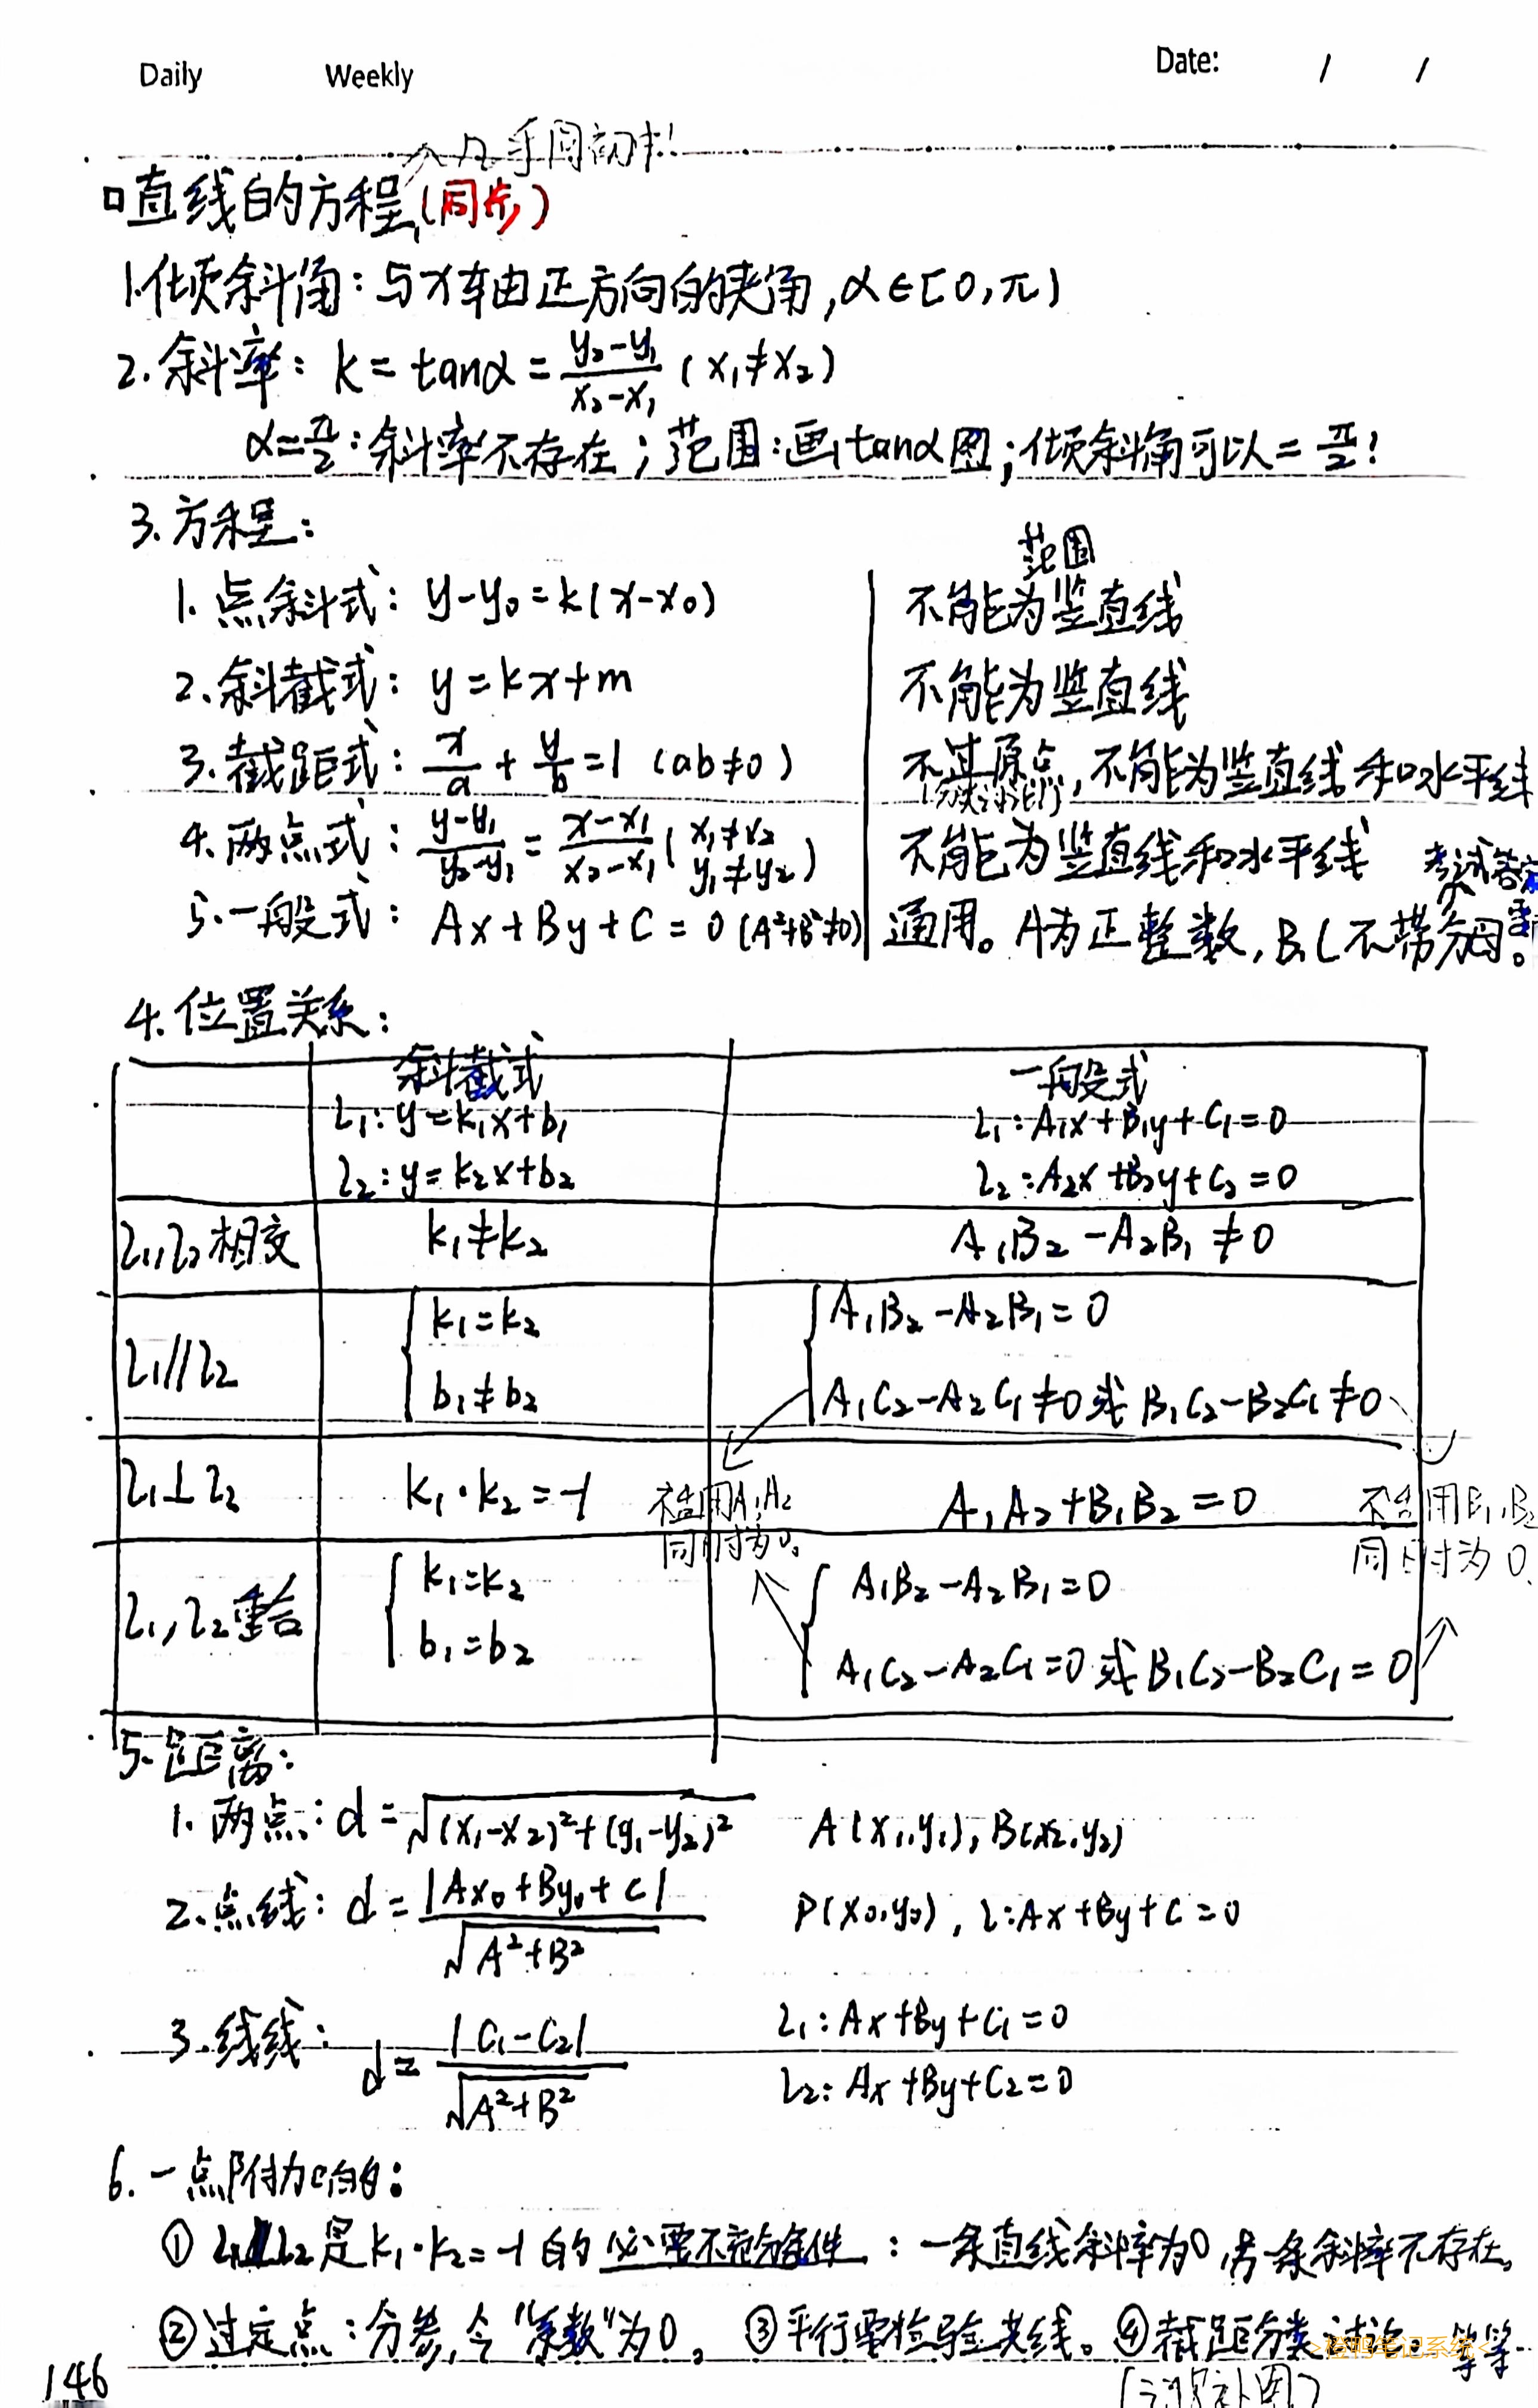 Daily Weekly Date: / /
口直线的方程(同步)
1.倾斜角：与x轴由正方向的夹角,α∈[0,π)
2.斜率：k=tanα=\frac{y₂-y₁}{x₂-x₁}(x₁≠x₂)
α=\frac{π}{2}:斜率不存在；范围:画tanα图;倾斜角可以=\frac{π}{2}!
3.方程：
范围
1.点斜式：y-y₀=k(x-x₀) 不能为竖直线
2.斜截式：y=kx+m 不能为竖直线
3.截距式：\frac{x}{a}+\frac{y}{b}=1 (ab≠0) 不过原点,不能为竖直线和水平线
(分类讨论)
4.两点式：\frac{y-y₁}{y₂-y₁}=\frac{x-x₁}{x₂-x₁}(x₁≠x₂ y₁≠y₂) 不能为竖直线和水平线
考试答案
5.一般式：Ax+By+C=0(A²+B²≠0) 通用。A为正整数,B,C不带分母。
4.位置关系：
斜截式 一般式
l₁:y=k₁x+b₁ l₁:A₁x+B₁y+C₁=0
l₂:y=k₂x+b₂ l₂:A₂x+B₂y+C₂=0
l₁,l₂相交 k₁≠k₂ A₁B₂-A₂B₁≠0
l₁//l₂ { k₁=k₂ b₁≠b₂ { A₁B₂-A₂B₁=0 A₁C₂-A₂C₁≠0或B₁C₂-B₂C₁≠0
l₁⊥l₂ k₁·k₂=-1 A₁A₂+B₁B₂=0
不适用A₁A₂
同时为0。
不适用B₁,B₂
同时为0.
l₁,l₂重合 { k₁=k₂ b₁=b₂ { A₁B₂-A₂B₁=0 A₁C₂-A₂C₁=0或B₁C₂-B₂C₁=0
5.距离：
1.两点：d=√(x₁-x₂)²+(y₁-y₂)² A(x₁,y₁),B(x₂,y₂)
2.点线：d=\frac{|Ax₀+By₀+C|}{√A²+B²} P(x₀,y₀),l:Ax+By+C=0
3.线线：d=\frac{|C₁-C₂|}{√A²+B²} l₁:Ax+By+C₁=0
l₂:Ax+By+C₂=0
6.一点附加的：
① l₁⊥l₂是k₁·k₂=-1的必要不充分条件：一条直线斜率为0,另一条斜率不存在。
②过定点：分参,令"系数"为0。③平行要检验共线。④截距分类讨论。等等
>橙鸭笔记系统<
146